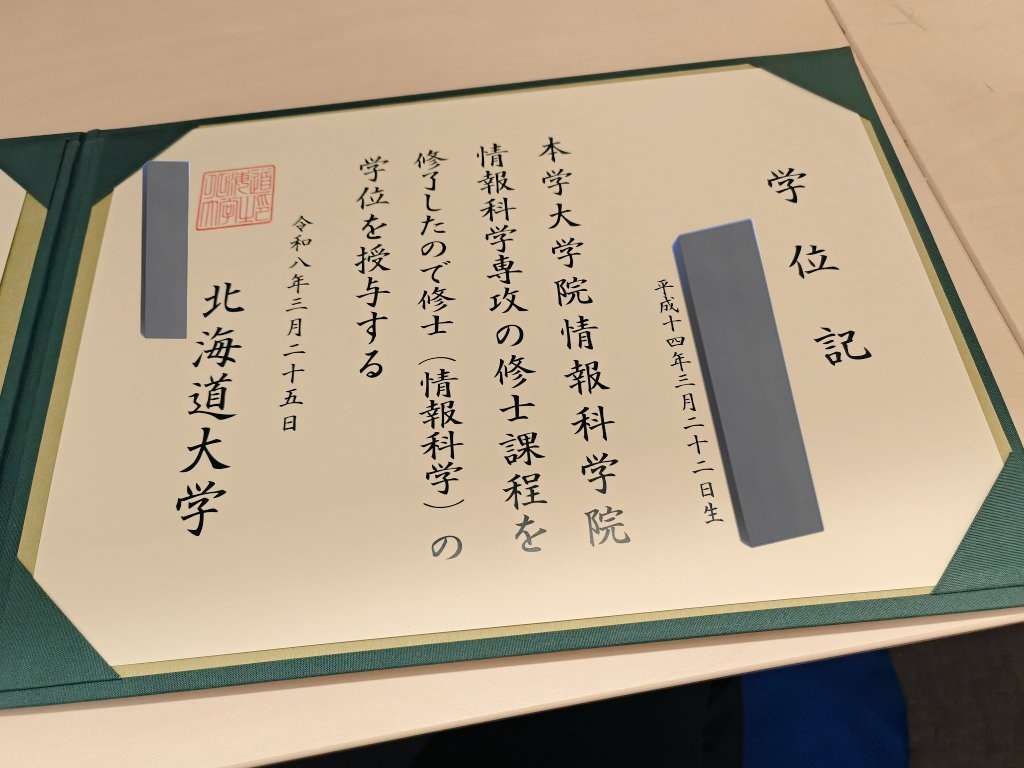 学位記
平成十四年三月二十二日生
本学大学院情報科学院
情報科学専攻の修士課程を
修了したので修士（情報科学）の
学位を授与する
令和八年三月二十五日
北海道大学